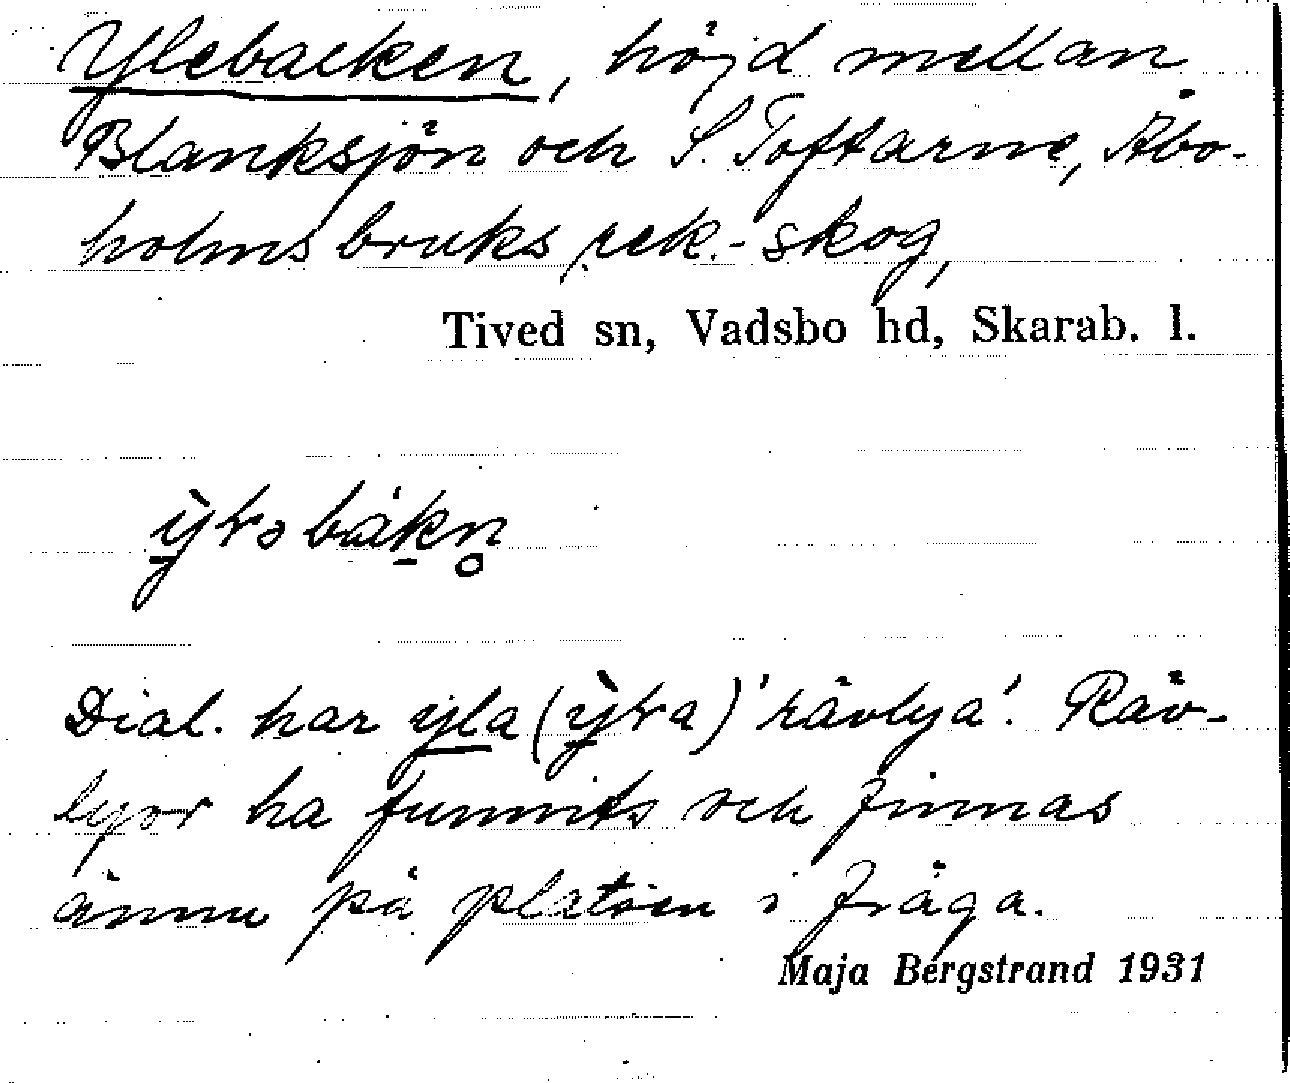 Ylebacken, höjd mellan
Blanksjön och S. Toftarne, Åbo-
holms bruks rek.-skog,
Tived sn, Vadsbo hd, Skarab. l.
Dial. har yla 'rävlya'. Räv-
lyor ha funnits och finnas
ännu på platsen i fråga.
Maja Bergstrand 1931